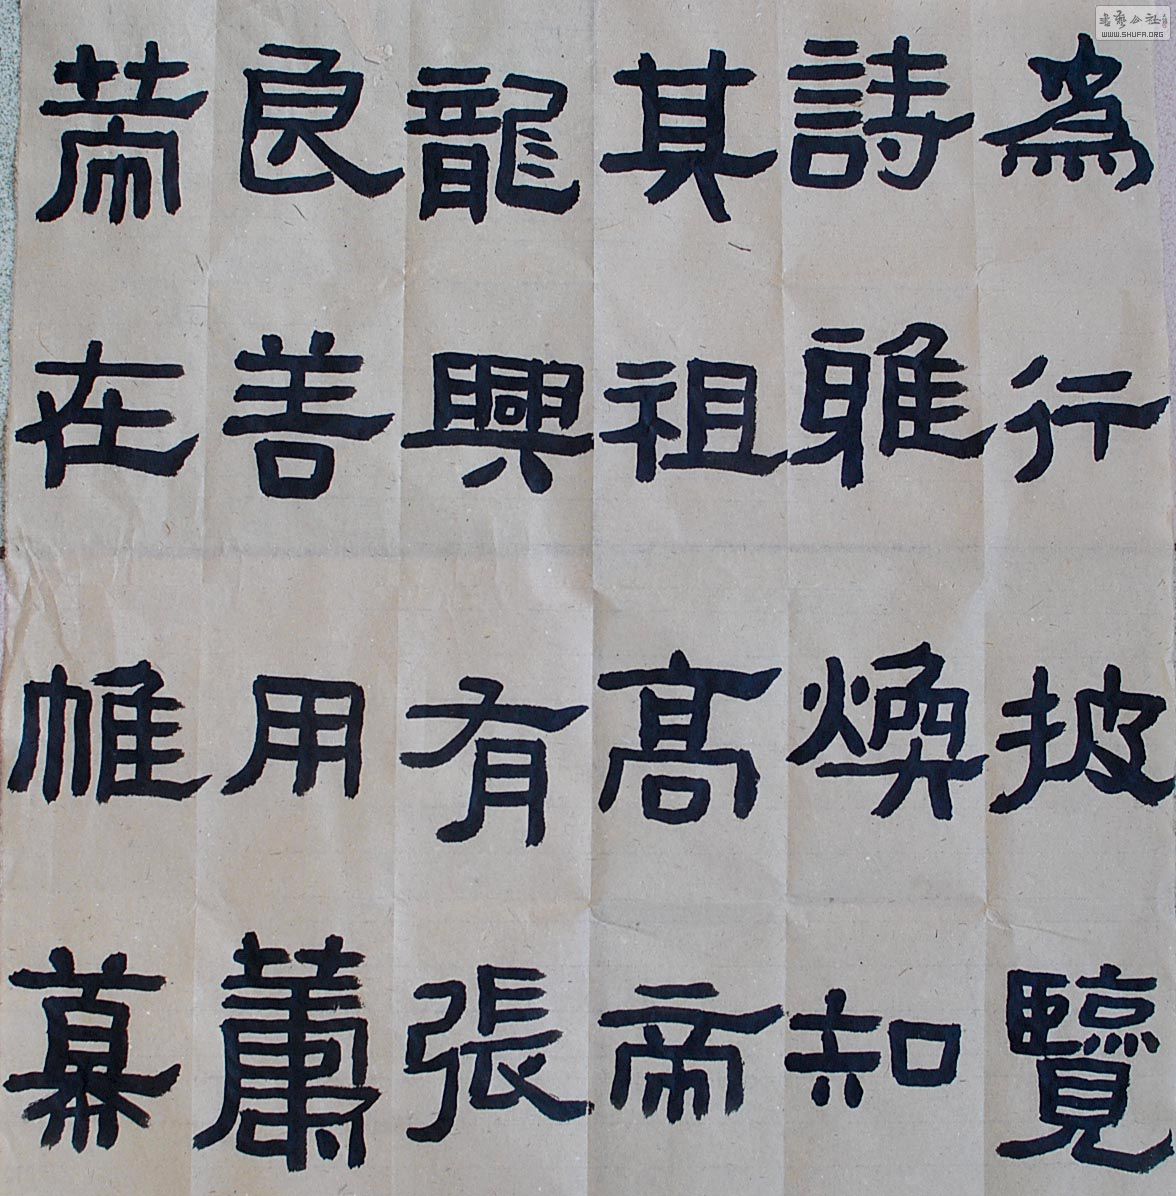 為行披覽
詩雅煥知
其祖高帝
龍興有張
良善用籌
策在帷幕
書藝公社
WWW.SHUFA.ORG